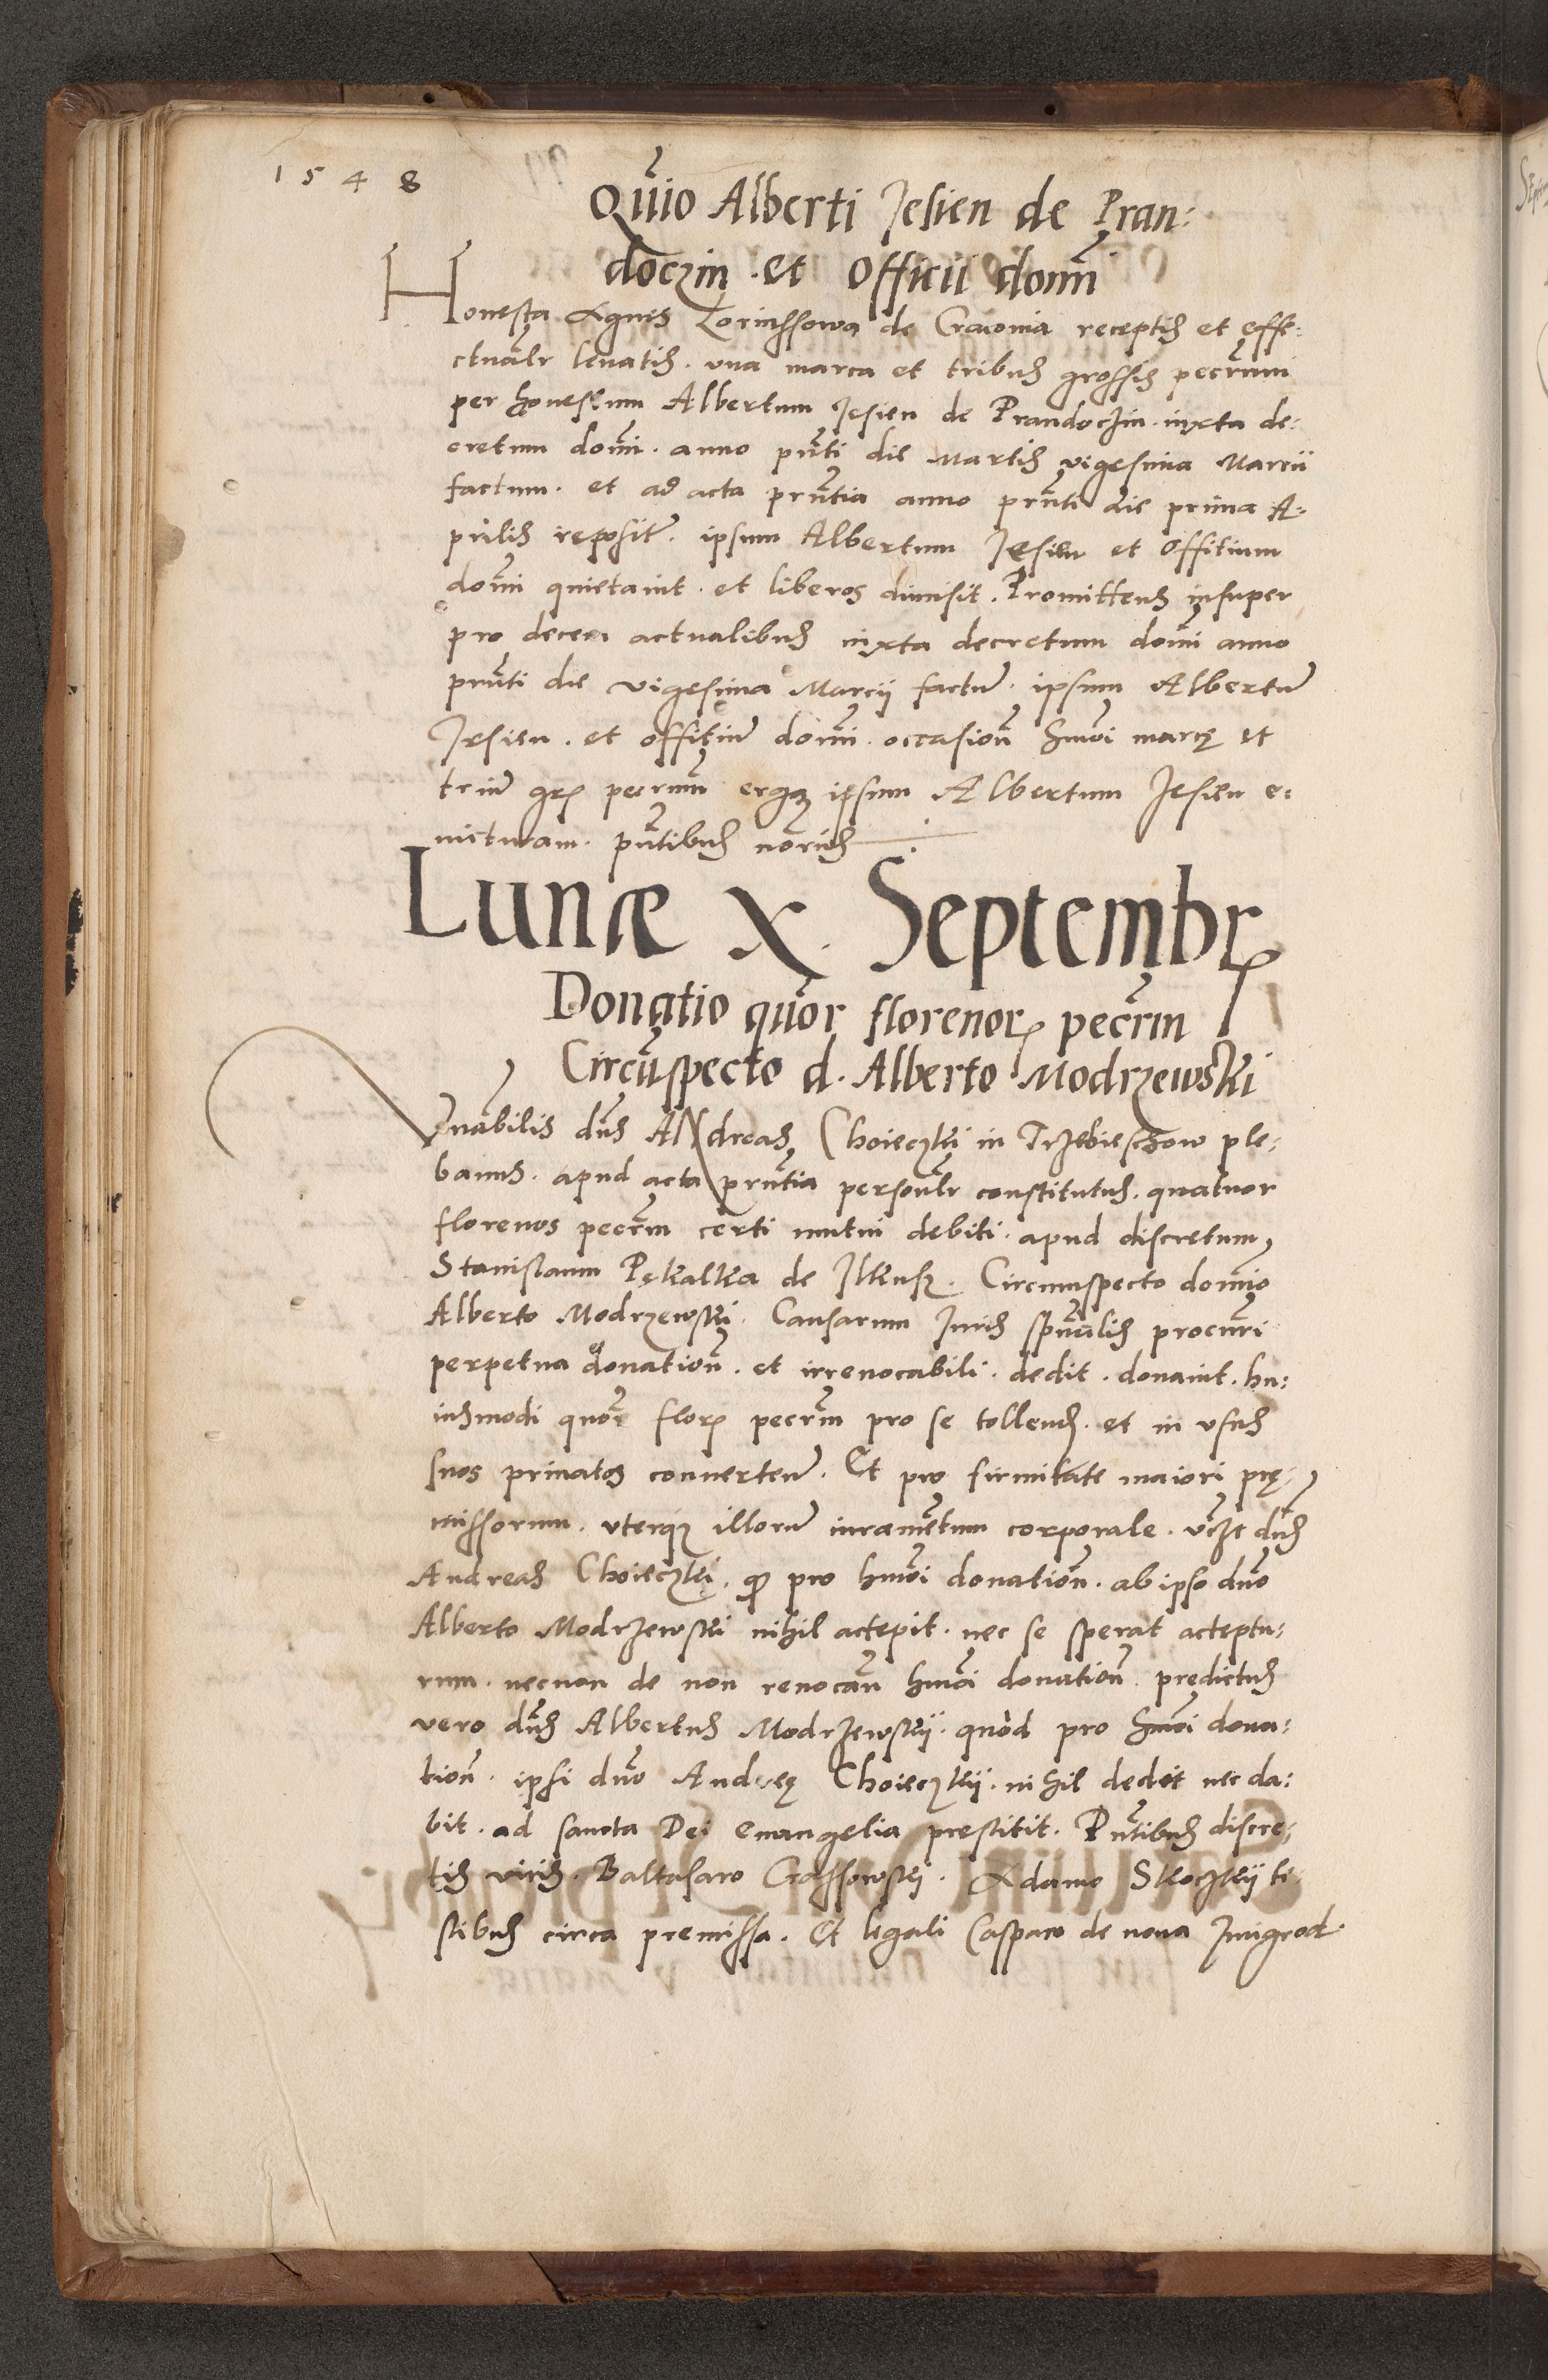 1548
Qũio Alberti Jesien de Pran:
doczin. et Officii domĩ
Honesta Agnes Lorinssowa de Cracovia receptis et effe:
ctualr levatis. una marca et tribus grossis pecũnii
per honestum Albertum Jesien de Prandoczin. iuxta de:
cretum domĩ. anno pñti die Martis vigesima Marcii
factum. et ad acta prñtia anno prñti die prima A:
prilis reposit̃. ipsum Albertum Jesien et Offitium
domĩ quietavit. et liberos dimisit. Promittens insuper
pro decem actualibus iuxta decretum domĩ anno
prñti die vigesima Marcii factũ. ipsum Albertũ
Jesien. et offitiũ domĩ. occasioñ hmõi marcę et
triũ grꝭ pecũm erga ipsum Albertum Jesien e:
victuram. pñtibus noriis
Lunæ X. Septembrꝭ
Donatio quõr florenorꝭ pecr̃m
Circũspecto d. Alberto Modrzewski
Vñabilis dñs ANdreas Choieczki in Trzebieschow ple:
banus. apud acta prñtia personlr̃ constitutus. quatuor
florenos pecr̃m certi mutui debiti. apud discretum
Stanislaum Pękalka de Ilkusz. Circumspecto domĩo
Alberto Modrzewski. Causarum Juris spũalis procurĩ
perpetua donatioñ. et irrevocabili. dedit. donavit. hu:
iusmodi quõr florꝭ pecr̃m pro se tollendꝭ. et in usus
suos privatos convertenꝭ. Et pro firmitate maiori prę:
missorum. uterqꝫ illorũ iuramẽtum corporale. vcꝫt dñs
Andreas Choieczki. qꝫ pro hmõi donatioñ. ab ipso dño
Alberto Modrzewski nihil accepit. nec se sperat acceptu:
rum. necnon de non revocañ hmõi donatioñ. prędictus
vero dñs Albertus Modrzewskij. quòd pro hmõi dona:
tioñ. ipsi dño Andreę Choieczkij. nihil dedit nec da:
bit. ad sancta Dei evangelia prestitit. Pñtibus discre:
tis viris. Baltasaro Crassowski. Adamo Skoczkij te:
stibus circa premissa. Et legali Casparo de nova Imigrod